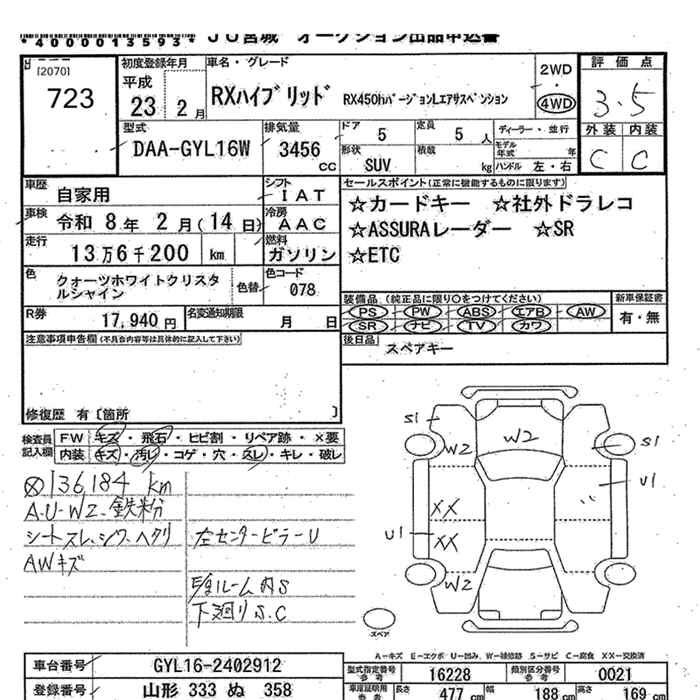 *4000013593*
JU宮城 オークション出品申込書
[2070]
723
初度登録年月
平成
23 2 月
車名・グレード
RXハイブリッド RX450hバージョンLエアサスペンション
2WD
4WD
評価点
3.5
外装 内装
C C
型式
DAA-GYL16W
排気量
3456
CC
ドア 5
定員 5 人
形状
SUV
積載
kg
ディーラー・並行
モデル年式 年
ハンドル 左・右
車歴
自家用
シフト
IAT
車検 令和 8年 2月(14日)
冷房
AAC
走行
13万6千200 km
燃料
ガソリン
色
クォーツホワイトクリスタルシャイン
色替
色コード
078
R券
17,940 円
名変通知期限
月 日
セールスポイント(正常に機能するものに限ります)
☆カードキー ☆社外ドラレコ
☆ASSURAレーダー ☆SR
☆ETC
装備品 (純正品に限り○をつけてください)
PS PW ABS エアB AW
SR ナビ TV カワ
新車保証書
有・無
後日品
スペアキー
注意事項申告欄(不具合内容等は具体的に記入して下さい)
修復歴 有〔箇所 〕
検査員記入欄
FW キズ・飛石・ヒビ割・リペア跡・×要
内装 キズ・汚レ・コゲ・穴・スレ・キレ・破レ
136,184 km
A.U・W2、鉄粉
シートスレ、シワ、ヘタリ
AWキズ
左センターピラーU
ルーム内S
下廻りS.C
S1
W2
W2
S1
U1
XX
XX
U1
W2
スペア
A-キズ E-エクボ U-凹み W-補修跡 S-サビ C-腐食 XX-交換済
車台番号
GYL16-2402912
登録番号
山形 333 ぬ 358
型式指定番号
参考
16228
類別区分番号
参考
0021
車庫証明用
参考
長さ 477 cm
幅 188 cm
高さ 169 cm